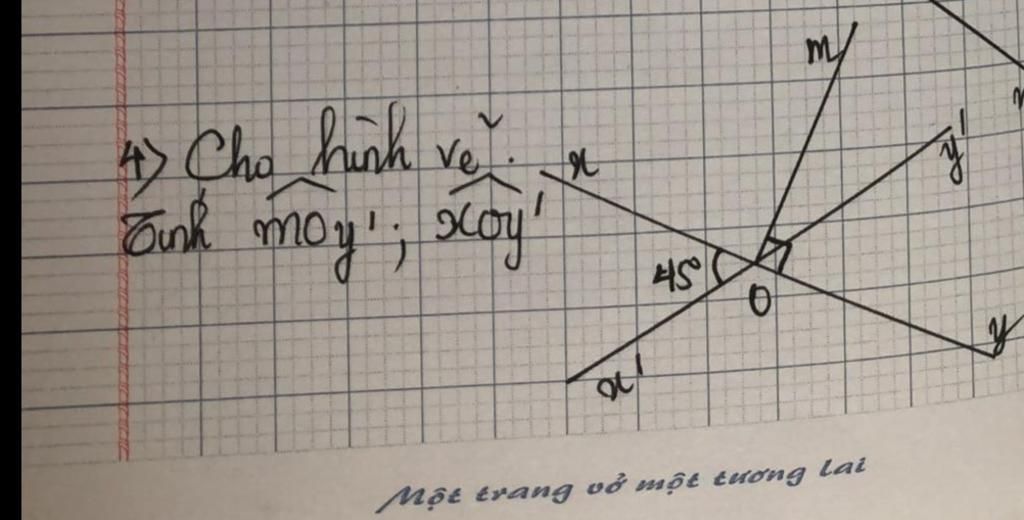 4) Cho hình vẽ.
Tính mOy'; xOy'
m
x
y'
45°
O
y
x'
Một trang vở một tương lai